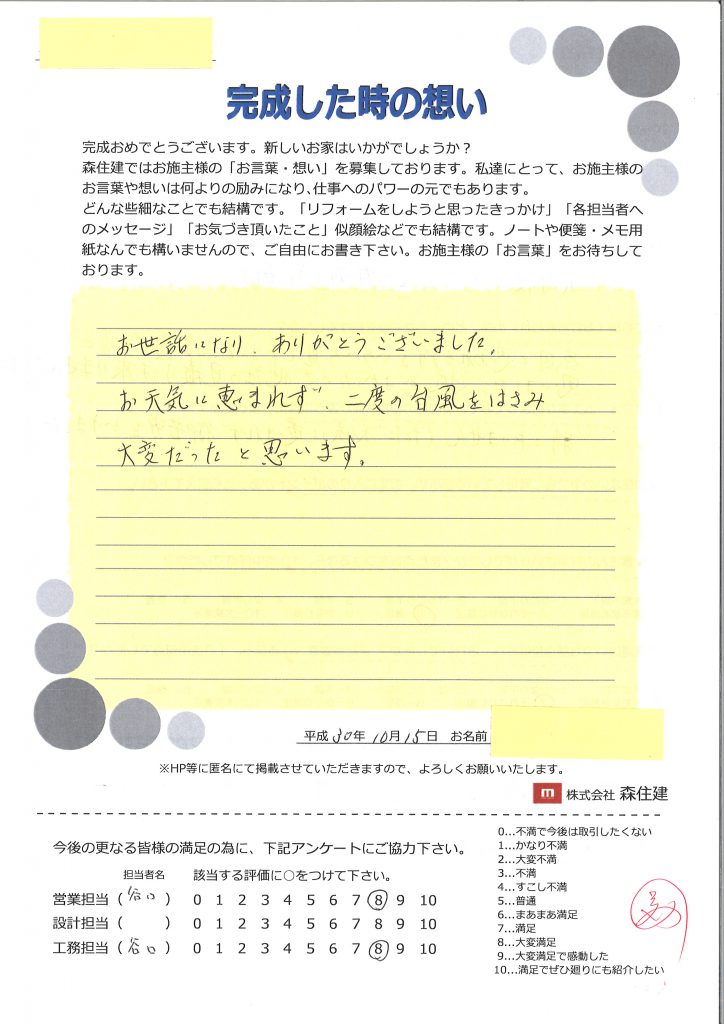 完成した時の想い
完成おめでとうございます。新しいお家はいかがでしょうか？
森住建ではお施主様の「お言葉・想い」を募集しております。私達にとって、お施主様の
お言葉や想いは何よりの励みになり、仕事へのパワーの元でもあります。
どんな些細なことでも結構です。「リフォームをしようと思ったきっかけ」「各担当者へ
のメッセージ」「お気づき頂いたこと」似顔絵などでも結構です。ノートや便箋・メモ用
紙なんでも構いませんので、ご自由にお書き下さい。お施主様の「お言葉」をお待ちして
おります。
お世話になり、ありがとうございました。
お天気に恵まれず、二度の台風をはさみ
大変だったと思います。
平成30年10月15日 お名前
※HP等に匿名にて掲載させていただきますので、よろしくお願いいたします。
m 株式会社 森住建
今後の更なる皆様の満足の為に、下記アンケートにご協力下さい。
担当者名 該当する評価に○をつけて下さい。
営業担当（谷口）0 1 2 3 4 5 6 7 8 9 10
設計担当（ ）0 1 2 3 4 5 6 7 8 9 10
工務担当（谷口）0 1 2 3 4 5 6 7 8 9 10
0…不満で今後は取引したくない
1…かなり不満
2…大変不満
3…不満
4…すこし不満
5…普通
6…まあまあ満足
7…満足
8…大変満足
9…大変満足で感動した
10…満足でぜひ廻りにも紹介したい